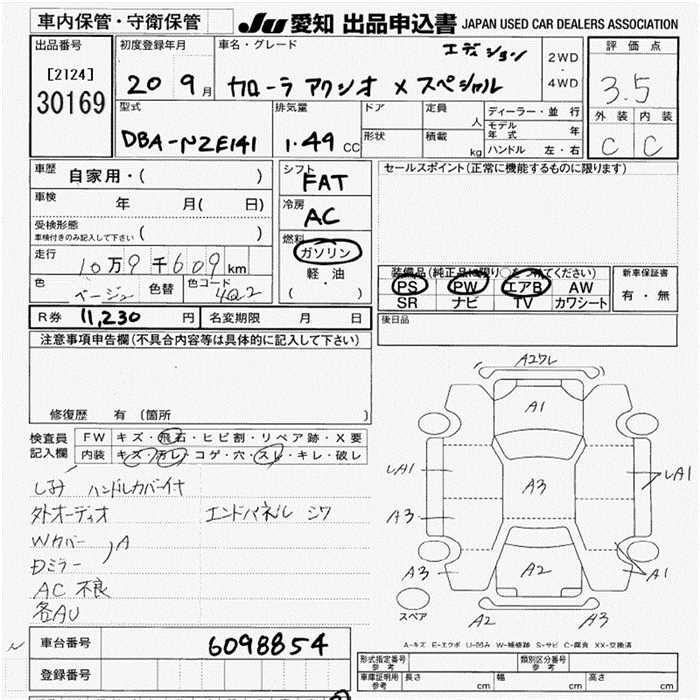 車内保管・守衛保管
JU 愛知 出品申込書 JAPAN USED CAR DEALERS ASSOCIATION
出品番号
[2124]
30169
初度登録年月
20 9月
車名・グレード
エディション
カローラ アクシオ X スペシャル
2WD
・
4WD
評価点
3.5
外装 内装
C C
型式
DBA-NZE141
排気量
1.49 CC
ドア
形状
定員 人
積載 kg
ディーラー・並行
モデル年式 年
ハンドル 左・右
車歴 自家用・( )
車検 年 月( 日)
受検形態
車検付きのみ記入して下さい ( )
走行 10万9千609km
色 ベージュ 色替 色コード 4Q2
シフト FAT
冷房 AC
燃料
ガソリン
軽・油
( )
セールスポイント(正常に機能するものに限ります)
装備品(純正品に限り○をつけてください)
PS PW エアB AW
SR ナビ TV カワシート
新車保証書
有・無
後日品
R券 11,230円 名変期限 月 日
注意事項申告欄(不具合内容等は具体的に記入して下さい)
修復歴 有(箇所 )
検査員記入欄
FW キズ・飛石・ヒビ割・リペア跡・X要
内装 キズ・汚レ・コゲ・穴・スレ・キレ・破レ
シミ ハンドルカバーイナ
外オーディオ エンドパネル シワ
Wカバー
Dミラー A
AC 不良
各AU
A2ワレ
A1
LA1
A3
A3
LA1
A3
A2
A1
スペア
A2
A3
A-キズ E-エクボ U-凹み W-補修跡 S-サビ C-腐食 XX-交換済
車台番号 6098854
登録番号
形式指定番号 参考
類別区分番号 参考
車庫証明用 参考 長さ cm 幅 cm 高さ cm